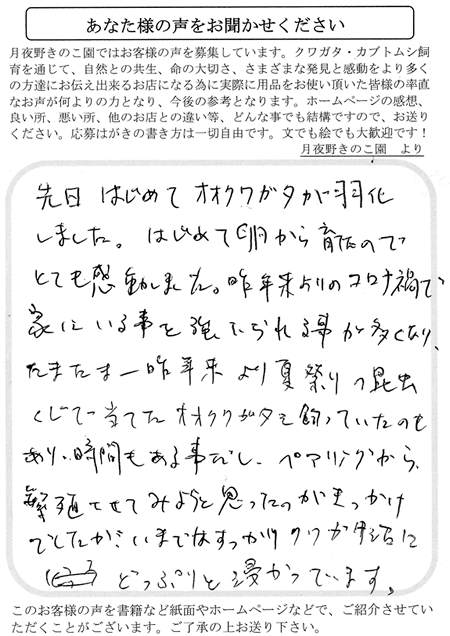 あなた様の声をお聞かせください
月夜野きのこ園ではお客様の声を募集しています。クワガタ・カブトムシ飼
育を通じて、自然との共生、命の大切さ、さまざまな発見と感動をより多く
の方達にお伝え出来るお店になる為に実際に用品をお使い頂いた皆様の率直
なお声が何よりの力となり、今後の参考となります。ホームページの感想、
良い所、悪い所、他のお店との違い等、どんな事でも結構ですので、お送り
ください。応募はがきの書き方は一切自由です。文でも絵でも大歓迎です！
月夜野きのこ園 より
先日 はじめて オオクワガタが羽化
しました。はじめて卵から育てたので
とても感動しました。昨年来よりのコロナ禍で
家にいる事を強いられる事が多くなり、
たまたま一昨年来より夏祭りの昆虫
くじで当てたオオクワガタを飼っていたのも
あり、時間もある事だし、ペアリングから、
繁殖させてみようと思ったのがきっかけ
でしたが、いまではすっかりクワガタ沼に
どっぷりと浸かっています。
このお客様の声を書籍など紙面やホームページなどで、ご紹介させてい
ただくことがございます。ご了承の上お送り下さい。